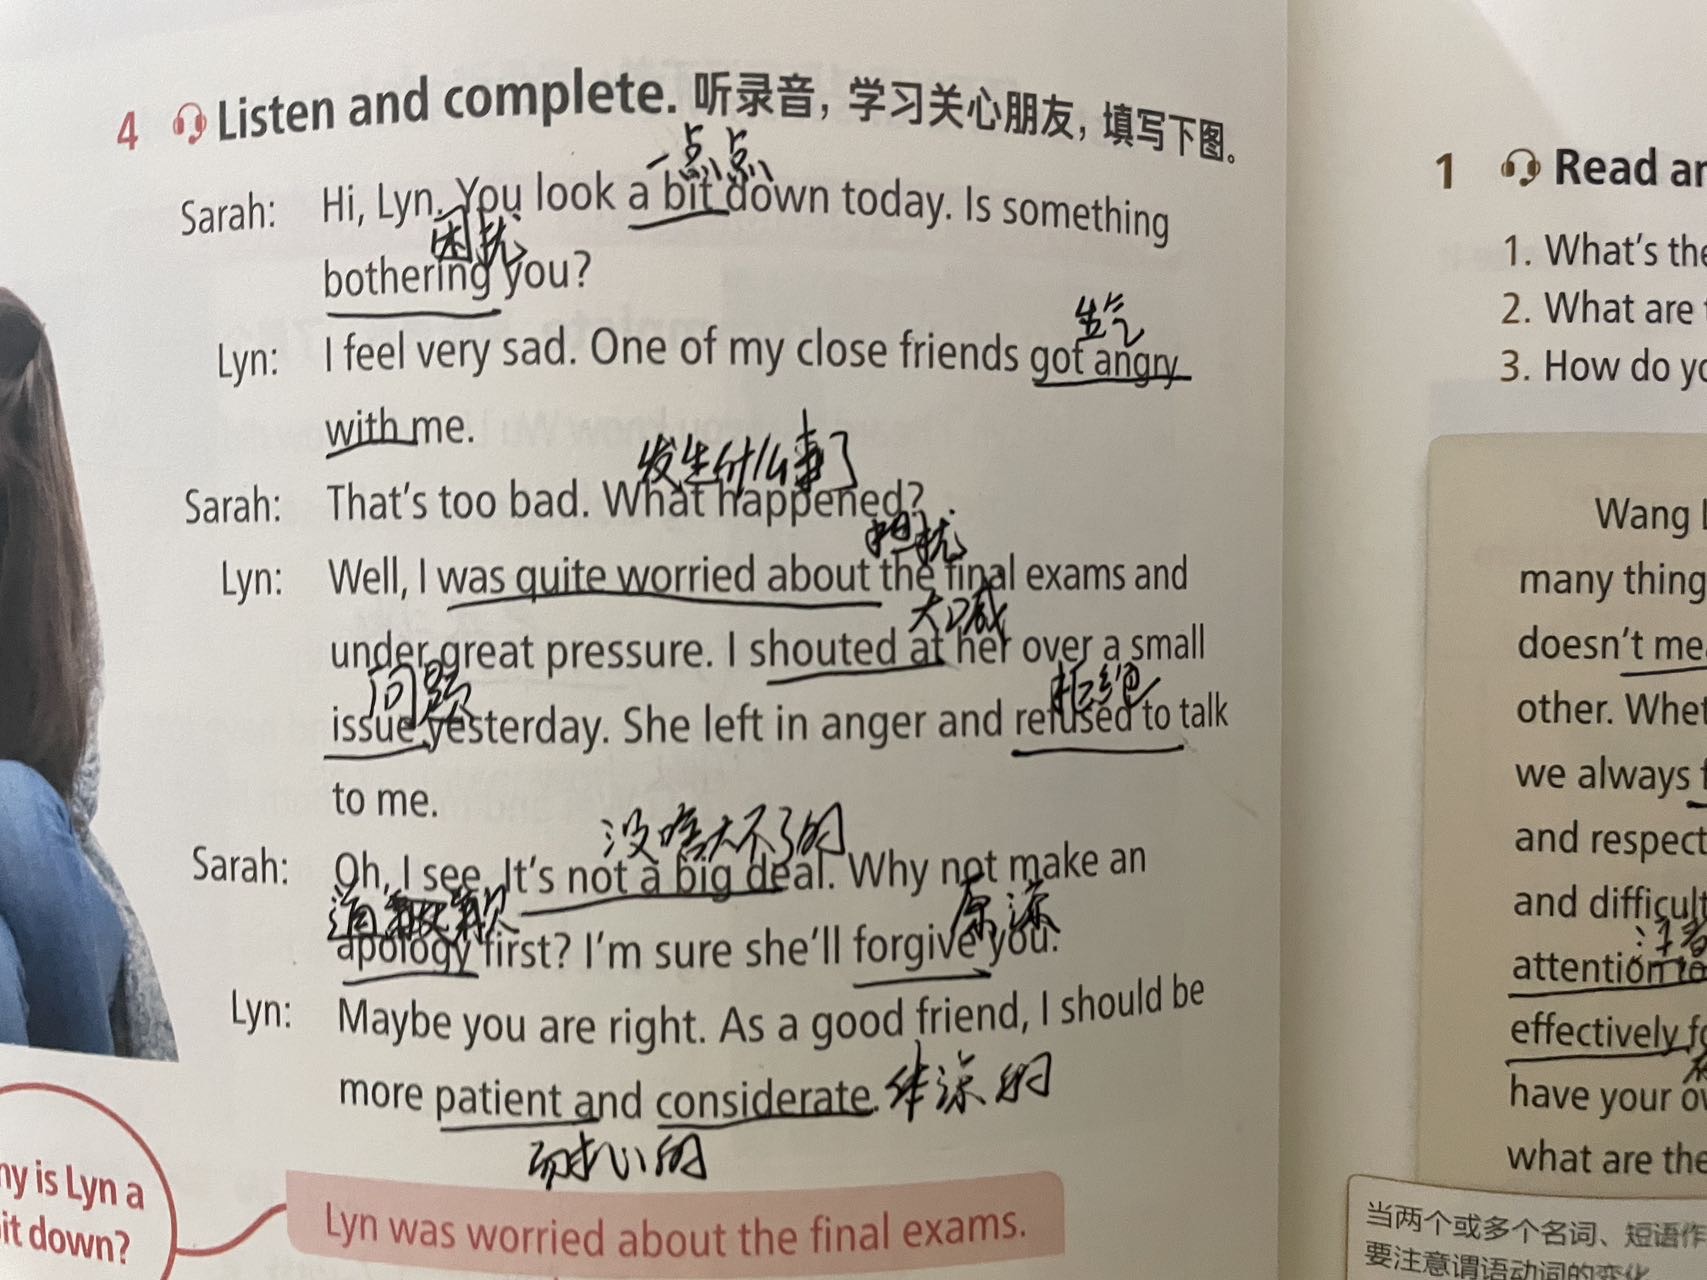 4 Listen and complete. 听录音，学习关心朋友，填写下图。
一点点
Sarah: Hi, Lyn. You look a bit down today. Is something
困扰
bothering you?
生气
Lyn: I feel very sad. One of my close friends got angry
with me.
发生什么事了
Sarah: That's too bad. What happened?
担扰
Lyn: Well, I was quite worried about the final exams and
大喊
under great pressure. I shouted at her over a small
问题 拒绝
issue yesterday. She left in anger and refused to talk
to me.
没啥大不了的
Sarah: Oh, I see. It's not a big deal. Why not make an
道歉 原谅
apology first? I'm sure she'll forgive you.
Lyn: Maybe you are right. As a good friend, I should be
more patient and considerate. 体谅的
耐心的
is Lyn a
down?
Lyn was worried about the final exams.
1 Read
1. What's
2. What are
3. How do
Wang
many
doesn't
other.
we always
and respect
and
attention
effectively
have your
what are
当两个或多个名词、短语作
要注意谓语动词的变化